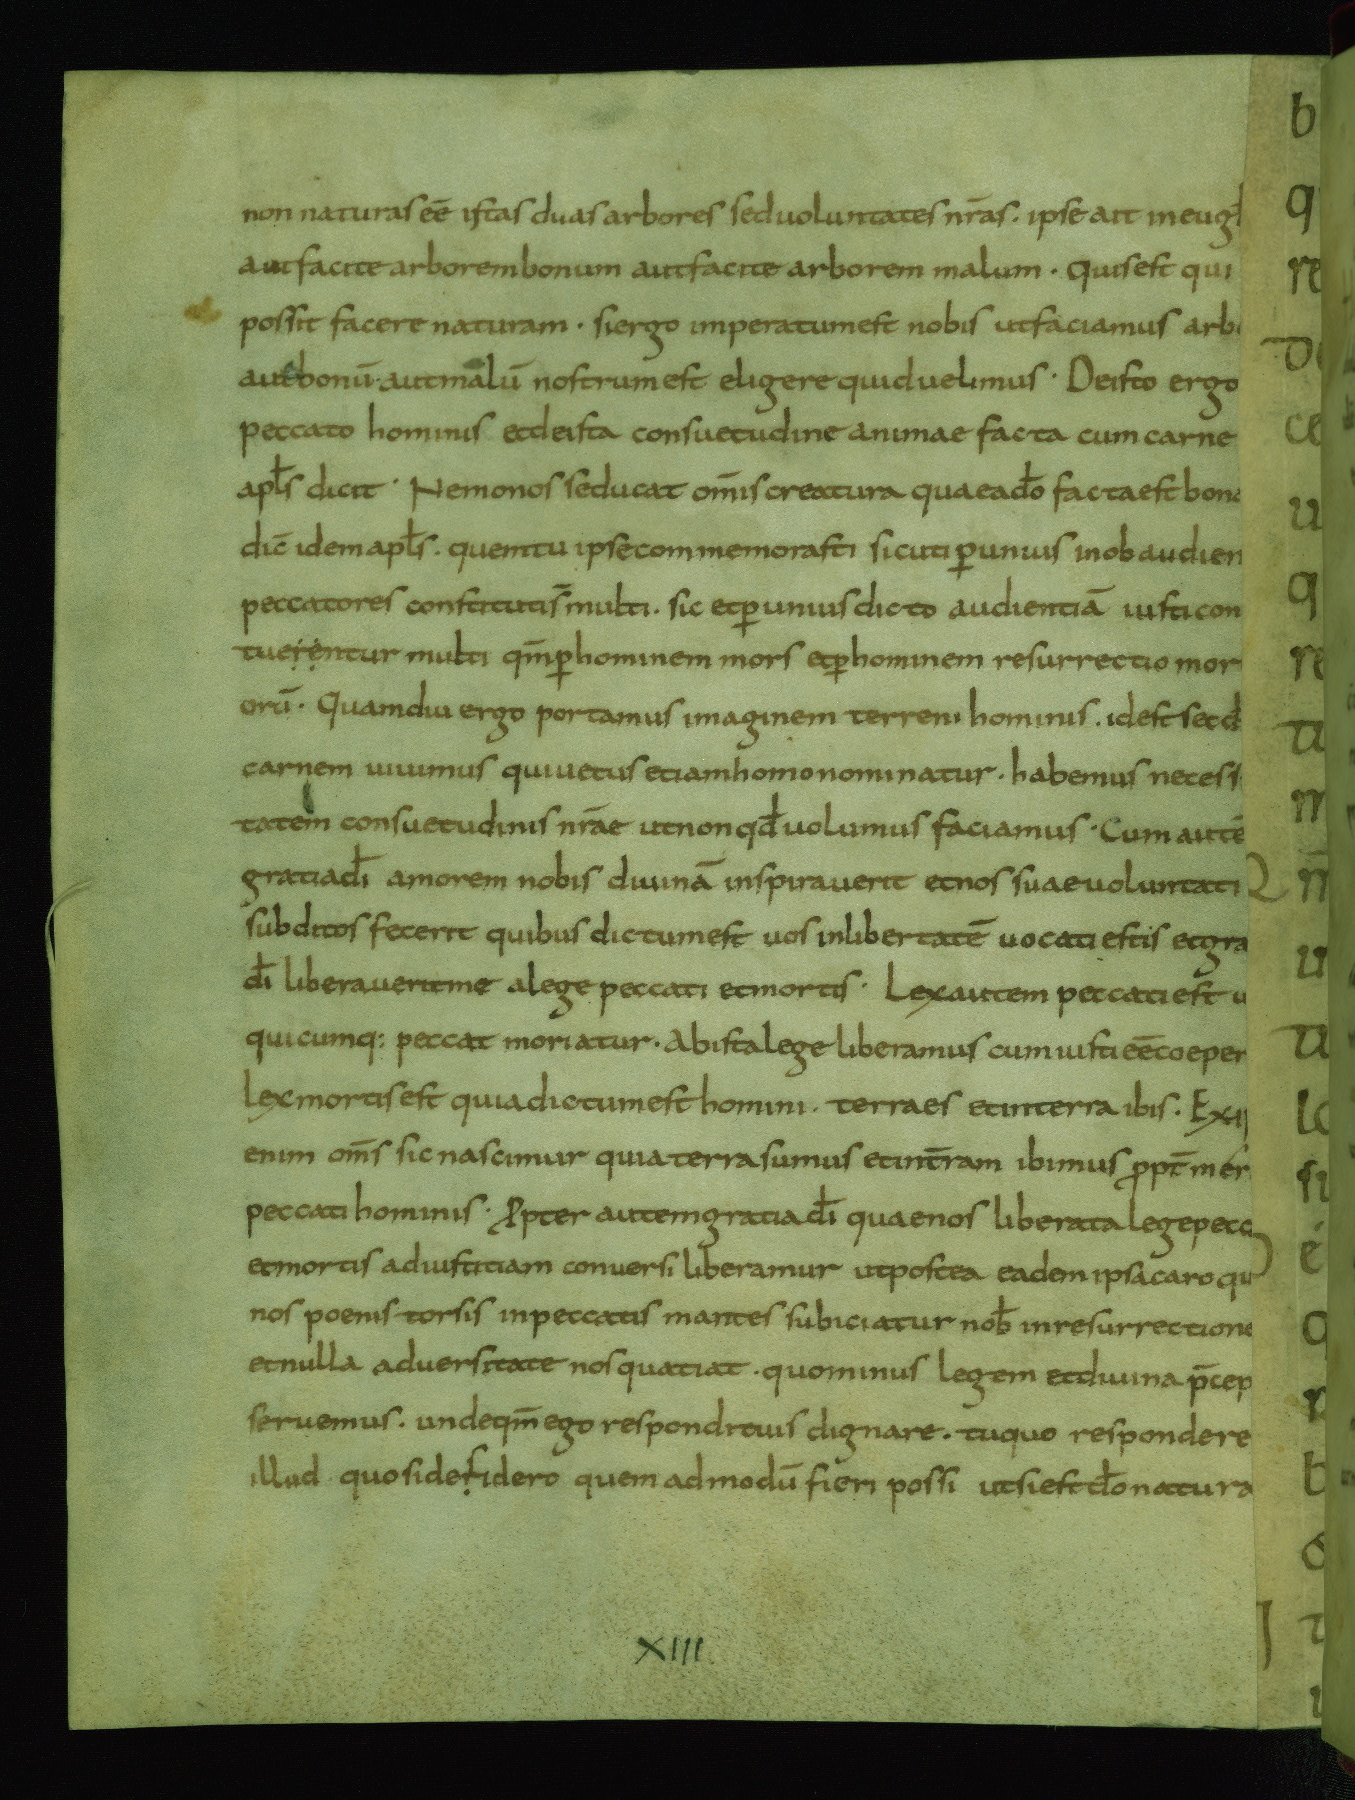 non naturas eē istas duas arbores sed uoluntates nr̄as. ipse ait in eug̅l
aut facite arborem bonum aut facite arborem malum. Quis est qui
possit facere naturam. si ergo imperatum est nobis ut faciamus arbo
aut bonū aut malū nostrum est eligere quid uelimus. De isto ergo
peccato hominis et de ista consuetudine animae facta cum carne
apl̄s dicit. Nemo nos seducat om̄is creatura quae a do̅ facta est bona
dic̄ idem apl̄s. quem tu ipse commemorasti sicuti ꝑ unius inobaudien
peccatores constituti s̄ multi. sic et ꝑ unius dicto audientiā iusti con
tuerentur multi qm̄ ꝑ hominem mors et ꝑ hominem resurrectio mor
orū. Quamdiu ergo portamus imaginem terreni hominis. id est secd̄
carnem uiuimus qui uetus etiam homo nominatur. habemus necess
tatem consuetudinis nr̄ae ut non qd̄ uolumus faciamus. Cum autē
gratia dī amorem nobis diuinā inspirauerit et nos suae uoluntati
subditos fecerit quibus dictum est uos in libertatē uocati estis et gra
dī liberauerit me a lege peccati et mortis. Lex autem peccati est u
quicumq: peccat moriatur. Ab ista lege liberamus cum iusti eē coeper
Lex mortis est quia dictum est homini. terra es et in terra ibis. Ex ip
enim om̄s sic nascimur quia terra sumus et in t̄ram ibimus ꝓpt̄ mer
peccati hominis. Ꝓpter autem gratia dī quae nos liberat a lege pecc
et mortis ad iustitiam conuersi liberamur ut postea eadem ipsa caro qu
nos poenis torsis in peccatis mantes subiciatur nob̄ in resurrectione
et nulla aduersitate nos quatiat. quominus legem et diuina p̄cep
seruemus. unde qm̄ ego respondi tuis dignare. tu quo respondere
illud quo si desidero quem ad modū fieri possi ut si est do̅ natura
XIII